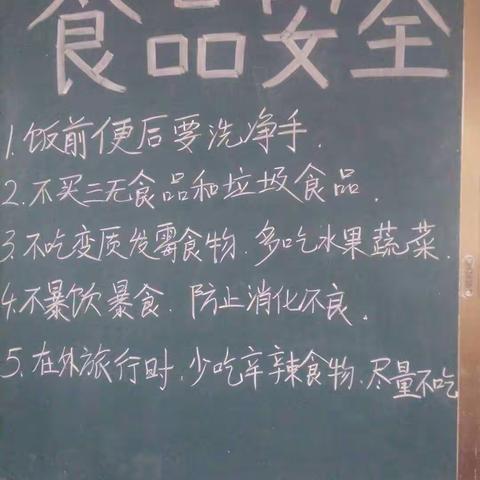 食品安全
1.饭前便后要洗净手.
2.不买三无食品和垃圾食品.
3.不吃变质发霉食物.多吃水果蔬菜.
4.不暴饮暴食.防止消化不良.
5.在外旅行时.少吃辛辣食物.尽量不吃